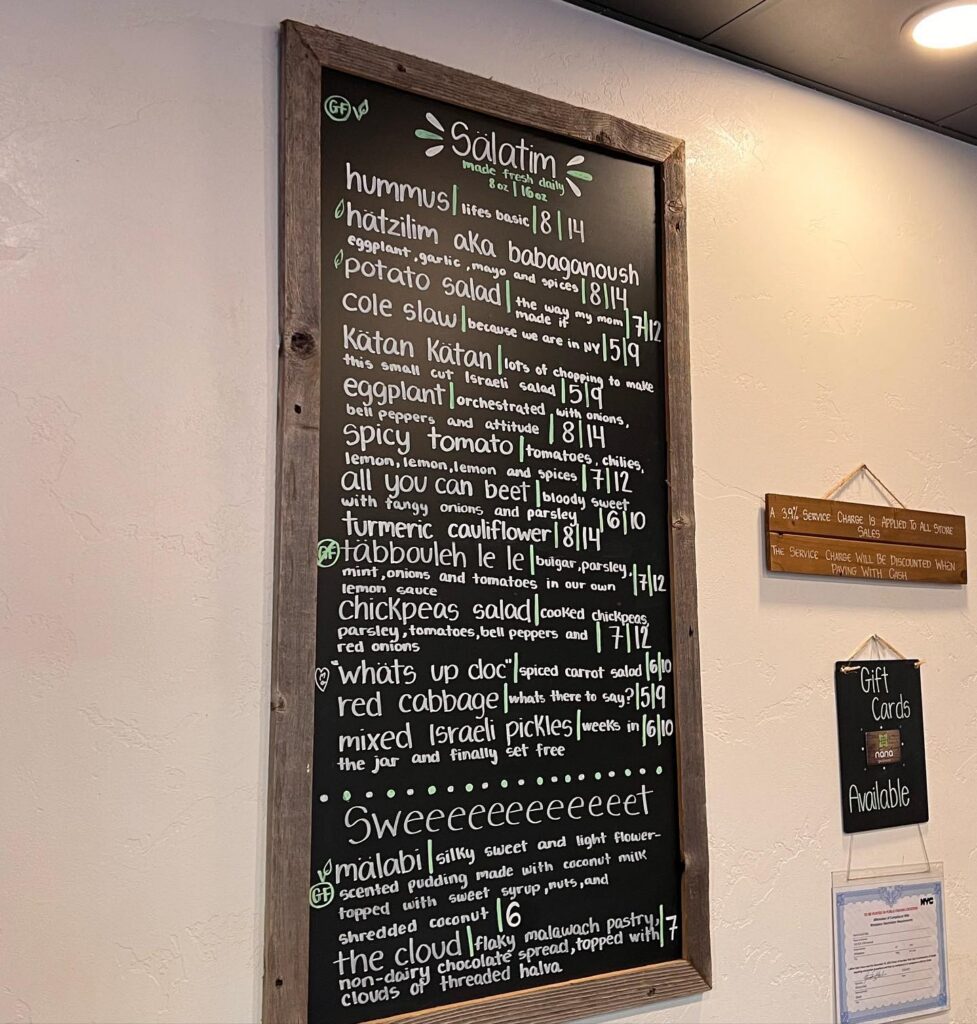 GF
Sälatim
made fresh daily
8 oz | 16 oz
hummus | lifes basic | 8 | 14
hätzilim aka babaganoush
eggplant, garlic, mayo and spices | 8 | 14
potato salad | the way my mom made it | 7 | 12
cole slaw | because we are in NY | 5 | 9
Kätan Kätan | lots of chopping to make
this small cut Israeli salad | 5 | 9
eggplant | orchestrated with onions,
bell peppers and attitude | 8 | 14
spicy tomato | tomatoes, chilies,
lemon, lemon, lemon and spices | 7 | 12
all you can beet | bloody sweet
with tangy onions and parsley | 6 | 10
turmeric cauliflower | 8 | 14
GF täbbouleh le le | bulgar, parsley,
mint, onions and tomatoes in our own | 7 | 12
lemon sauce
chickpeas salad | cooked chickpeas,
parsley, tomatoes, bell peppers and | 7 | 12
red onions
"whäts up doc" | spiced carrot salad | 6 | 10
red cabbage | whats there to say? | 5 | 9
mixed Israeli pickles | weeks in | 6 | 10
the jar and finally set free
Sweeeeeeeeeeeet
mälabi | silky sweet and light flower-
GF scented pudding made with coconut milk
topped with sweet syrup, nuts, and
shredded coconut | 6
the cloud | flaky malawach pastry, | 7
non-dairy chocolate spread, topped with
clouds of threaded halva
A 3.9% Service Charge Is Applied To All Store
Sales
The Service Charge Will Be Discounted When
Paying With Cash
Gift
Cards
nänä
Available
NYC